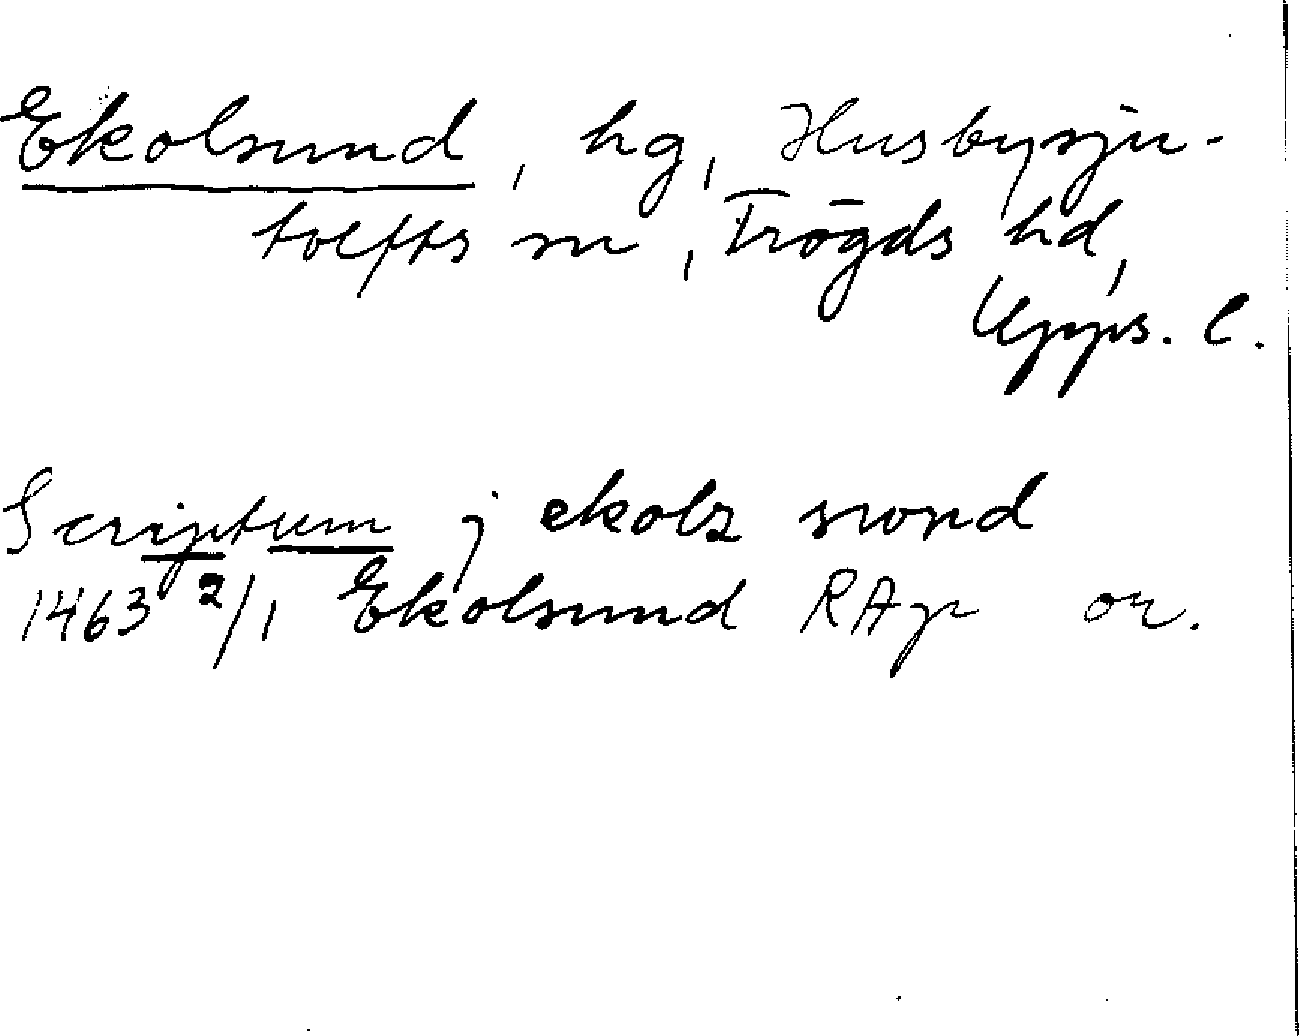 Ekolsund, hg, Husbysju-
tolfts sn, Trögds hd,
Upps. l.
Scriptum j ekolz swnd
1463 2/1 Ekolsund RAp or.